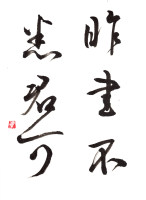 昨書不
悉君可